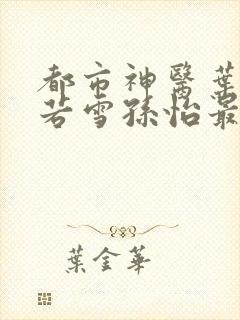 都市神醫葉
若雪孫怡最
葉金華